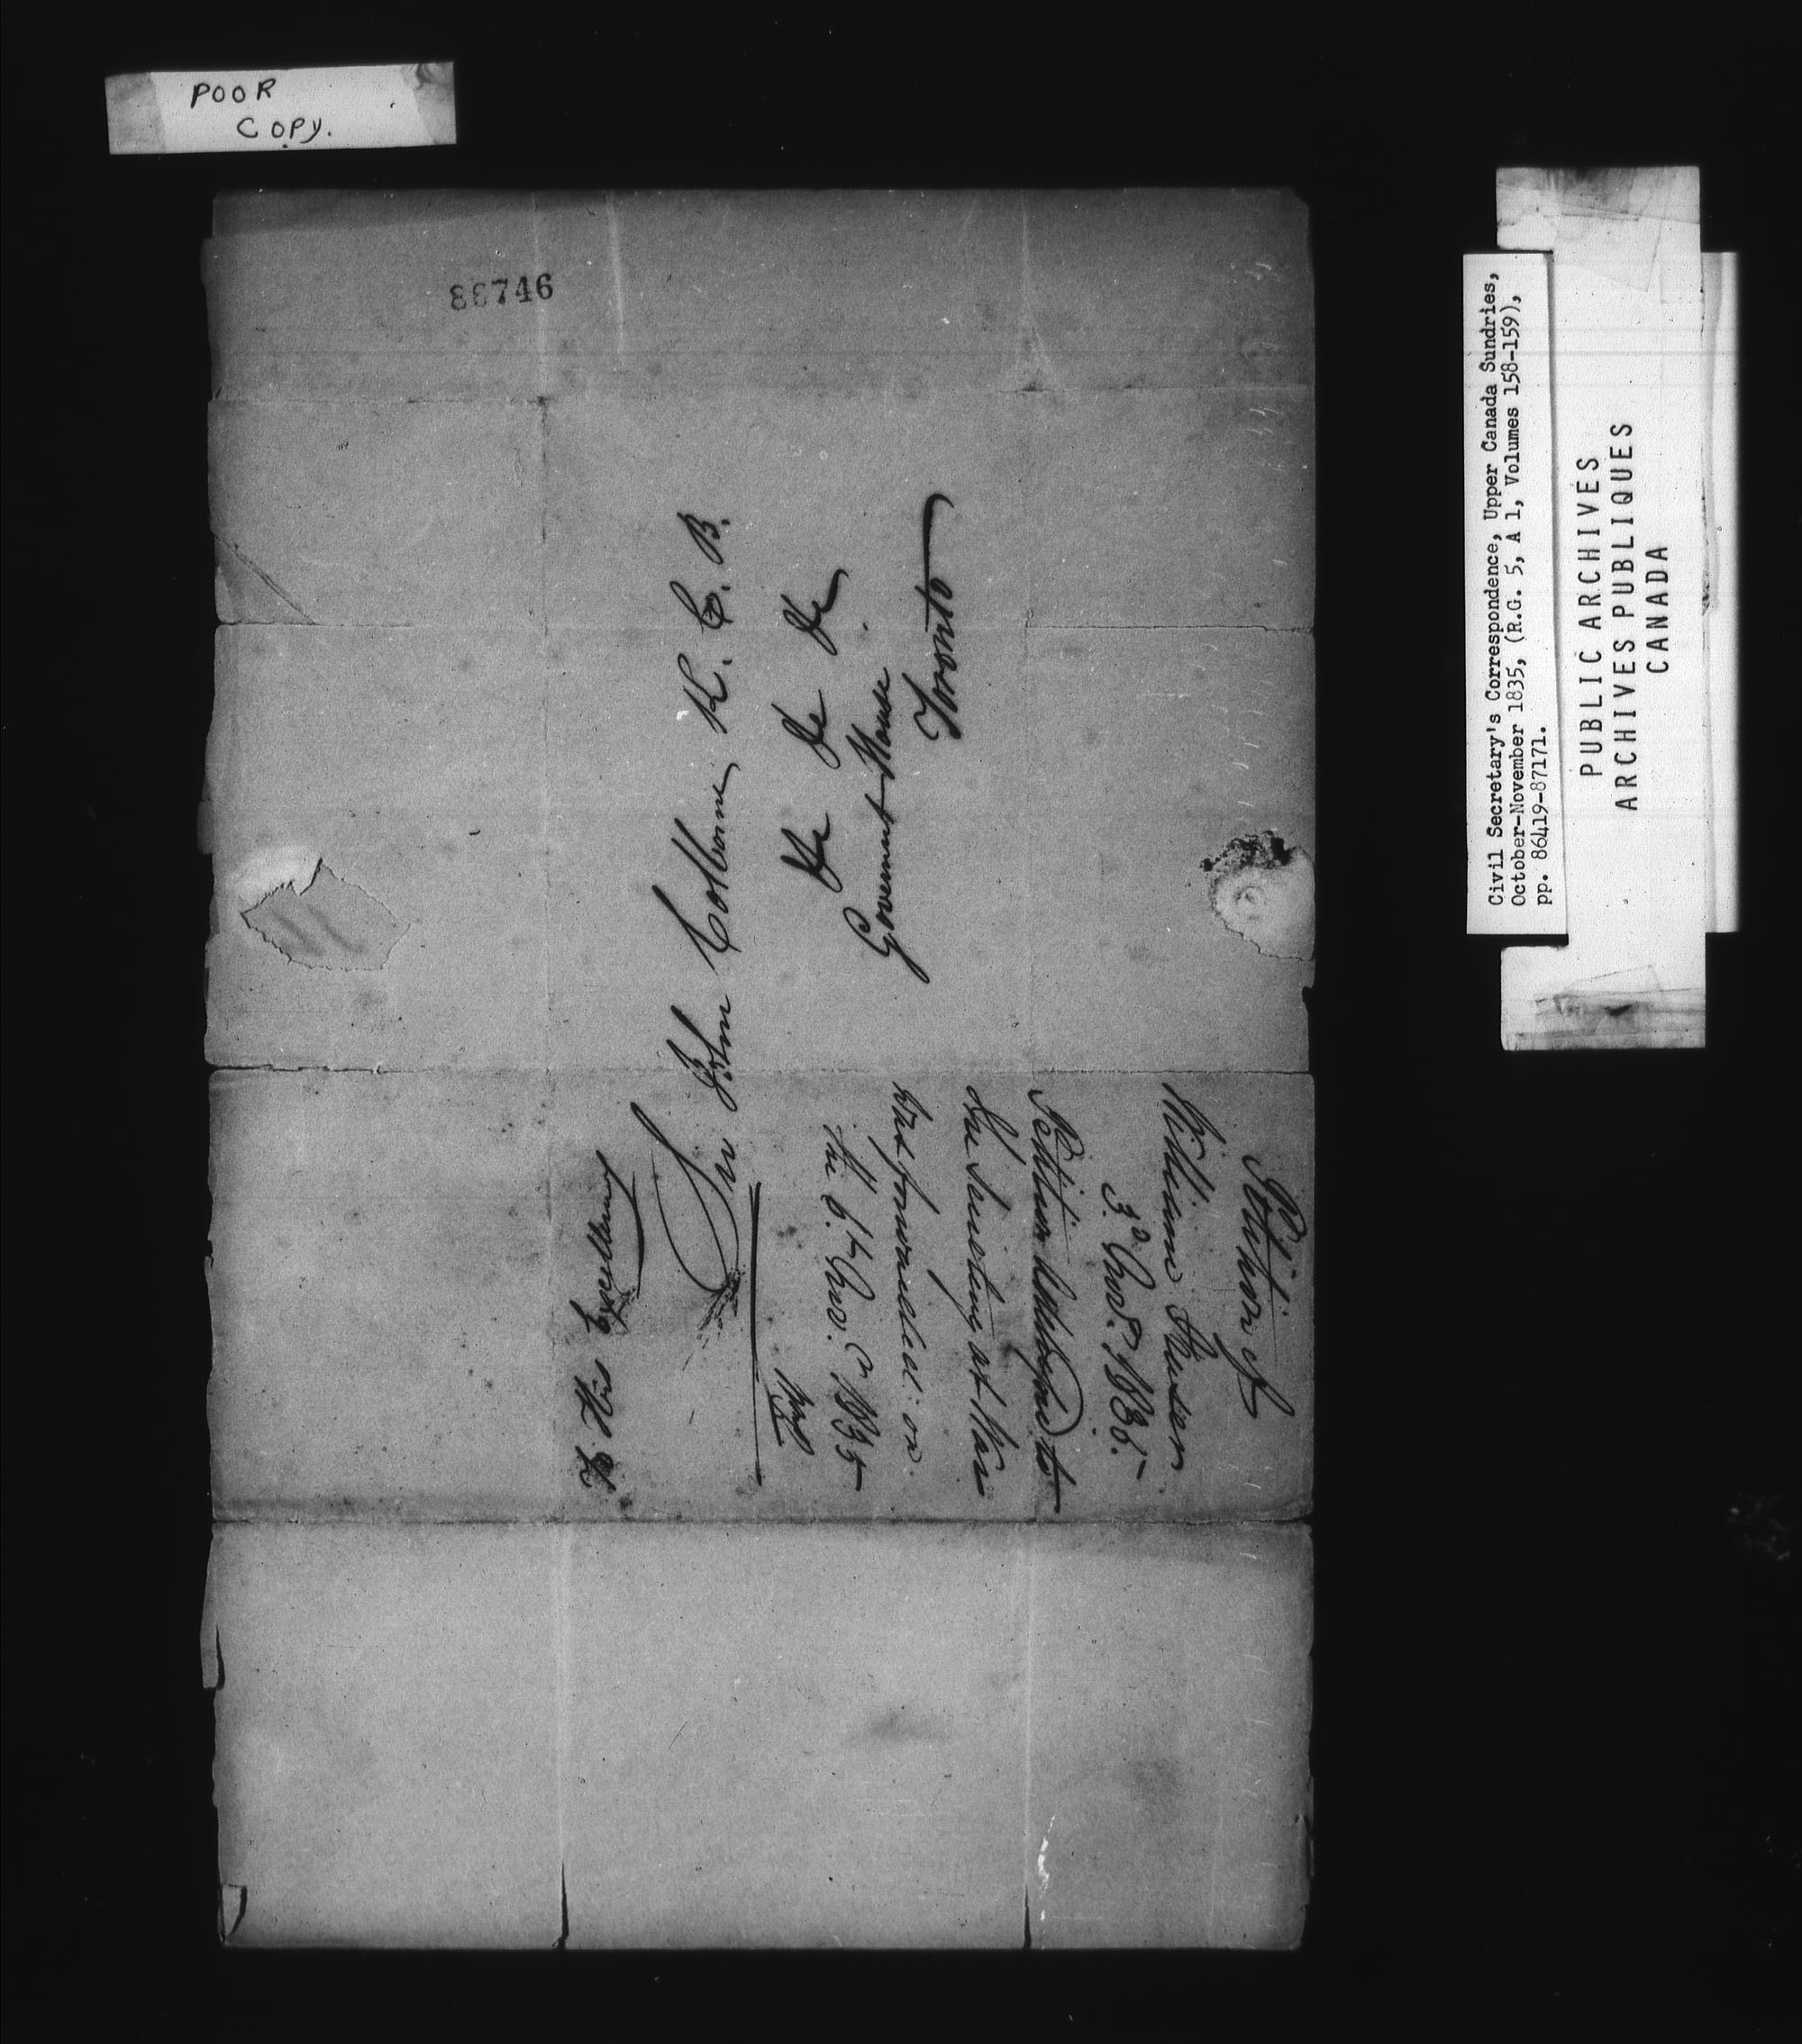 POOR
COPY.
86746
To His Excellency
Sir John Colborne K. C. B.
&c &c &c
Government House
Toronto
Petition of
William
3d. Novr. 1835.
Petition to
the Secretary at War
but forwarded on
the 6th Nov. 1835
Civil Secretary's Correspondence, Upper Canada Sundries,
October-November 1835, (R.G. 5, A 1, Volumes 158-159),
pp. 86419-87171.
PUBLIC ARCHIVES
ARCHIVES PUBLIQUES
CANADA